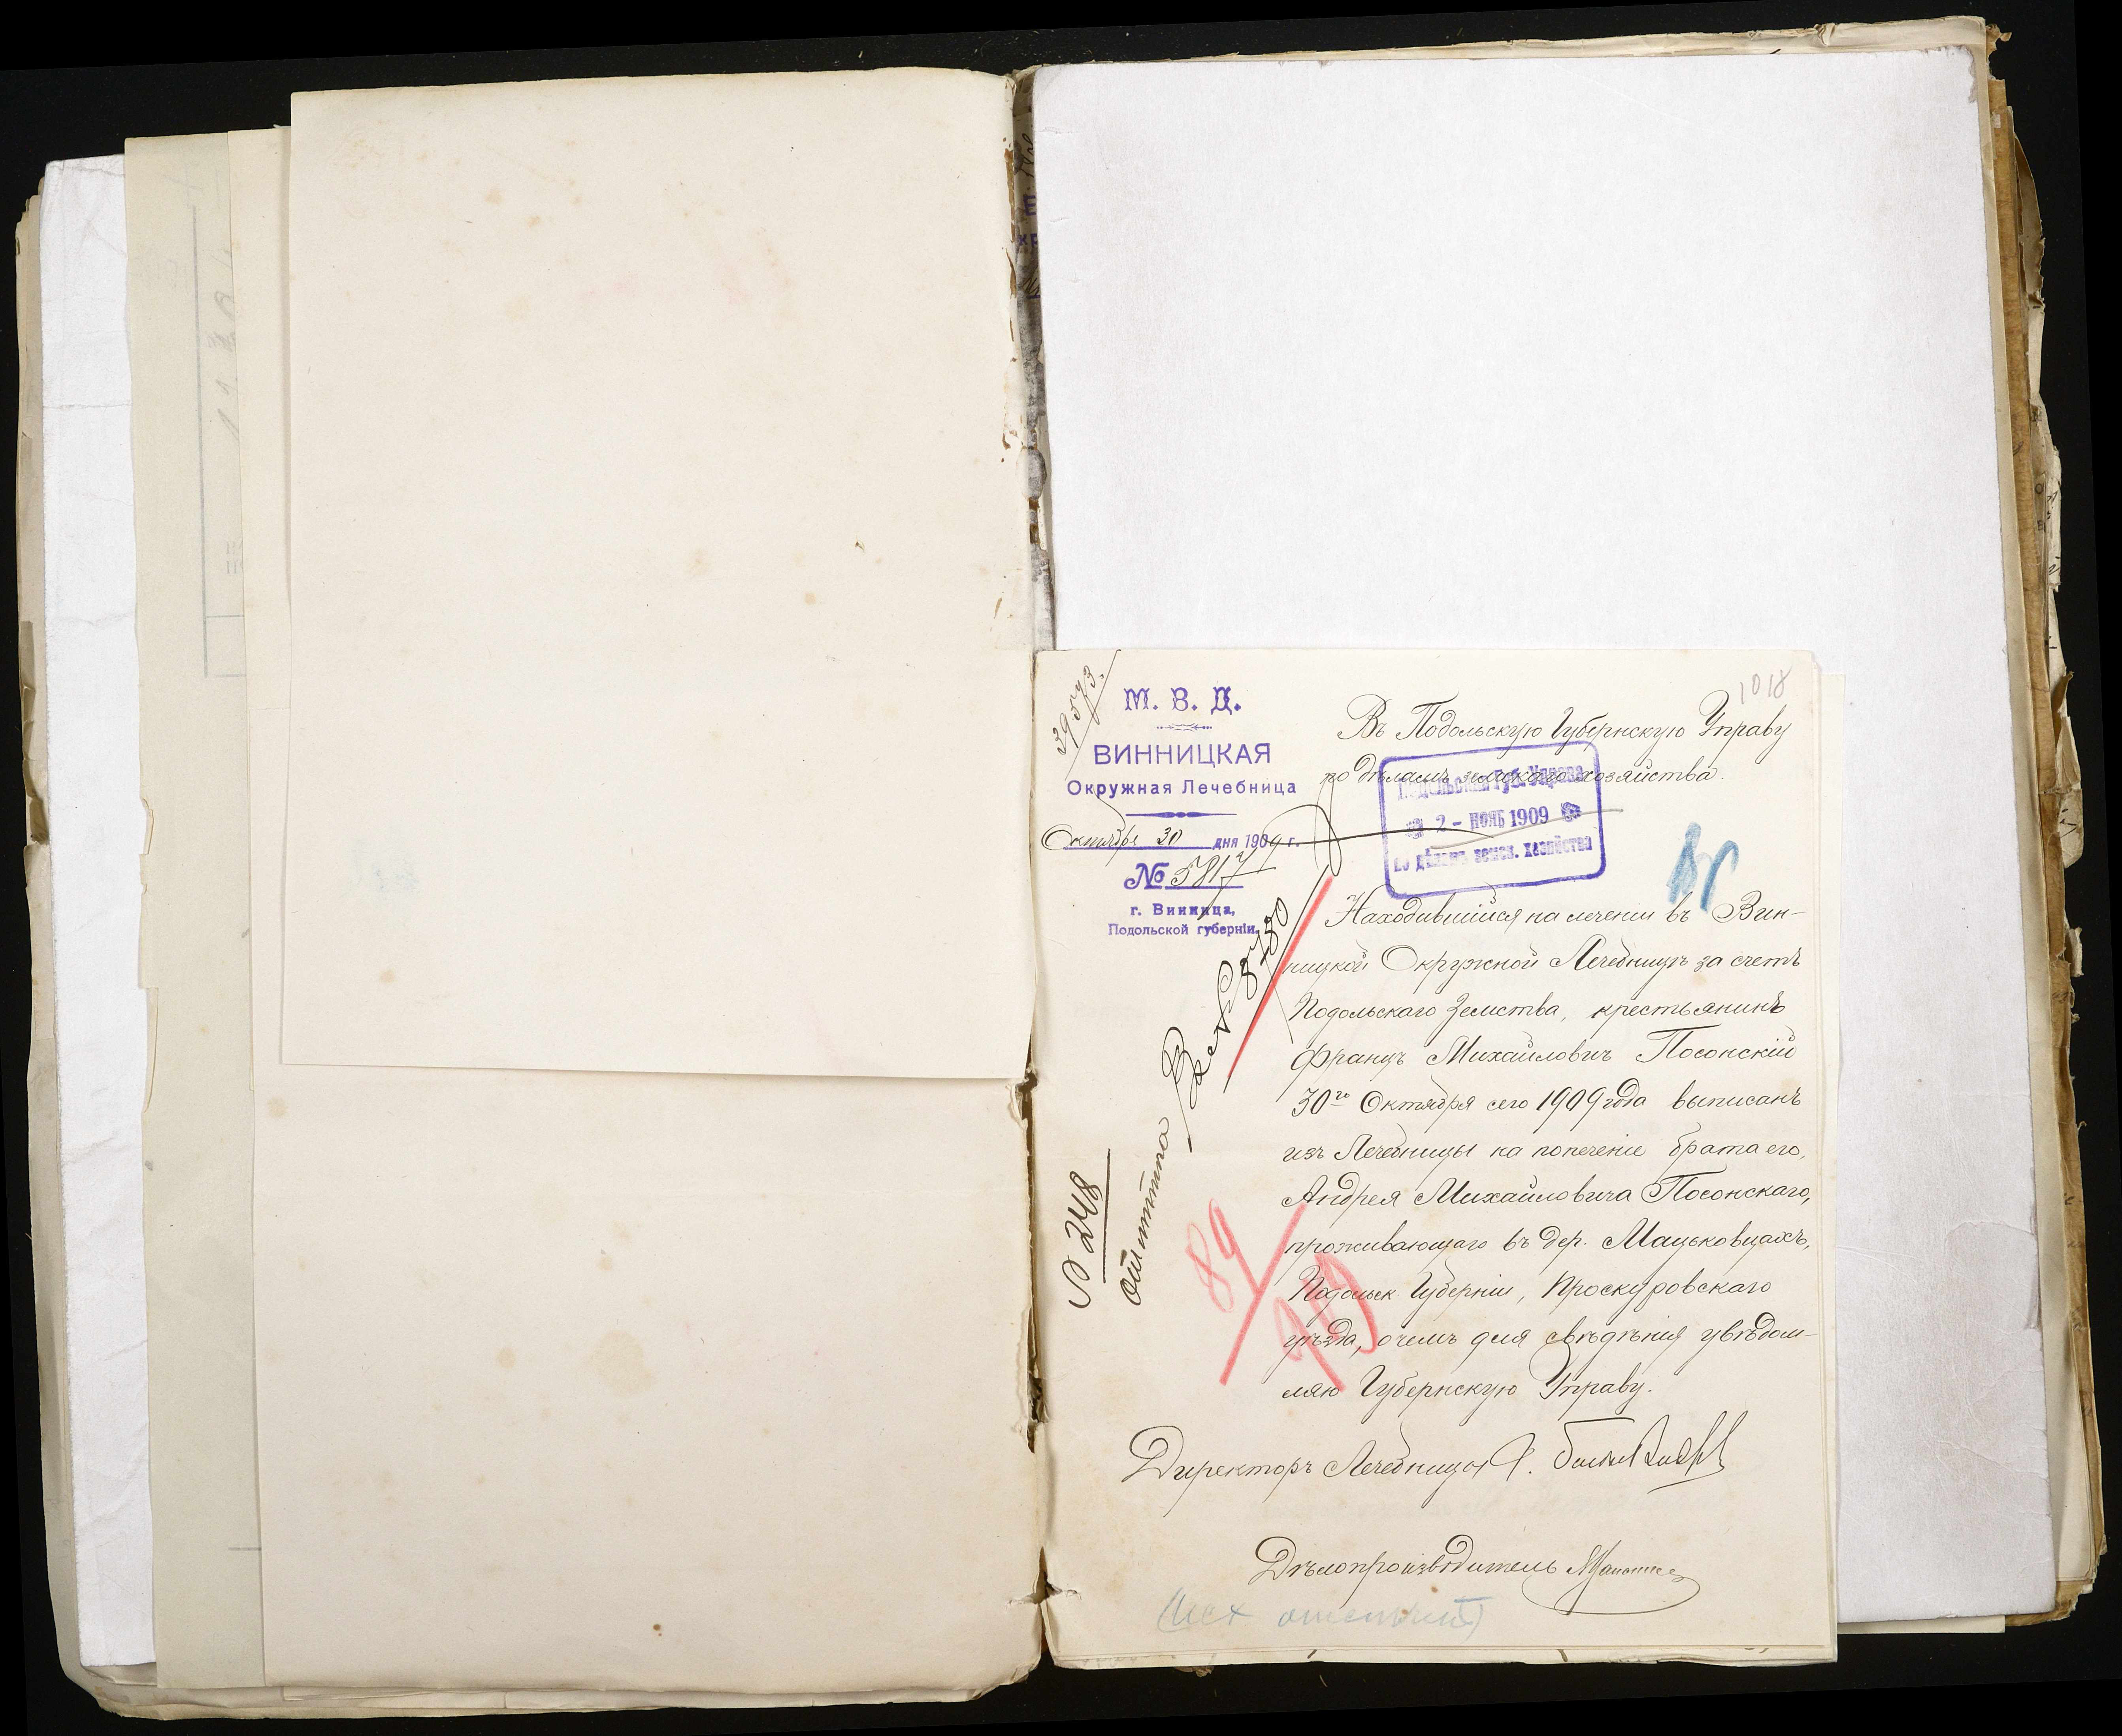 1018
39573.
М. В. Д.
ВИННИЦКАЯ
Окружная Лечебница
Октября 30 дня 1909 г.
№ 5817
г. Винница,
Подольской губерніи.
Въ Подольскую Губернскую Управу
по дѣламъ земскаго хозяйства.
Подольская Губ. Управа
2 - НОЯБ 1909
по дѣламъ земск. хозяйства
Находившійся на леченіи въ Вин-
ницкой Окружной Лечебницѣ за счетъ
Подольскаго Земства, крестьянинъ
Францъ Михайловичъ Посонскій
30го Октября сего 1909 года выписанъ
изъ Лечебницы на попеченіе брата его,
Андрея Михайловича Посонскаго,
проживающаго въ дер. Мацьковцахъ,
Подольск. Губерніи, Проскуровскаго
уѣзда, о чемъ для свѣдѣнія увѣдом-
ляю Губернскую Управу.
Директоръ Лечебницы
Дѣлопроизводитель
№ 248
89